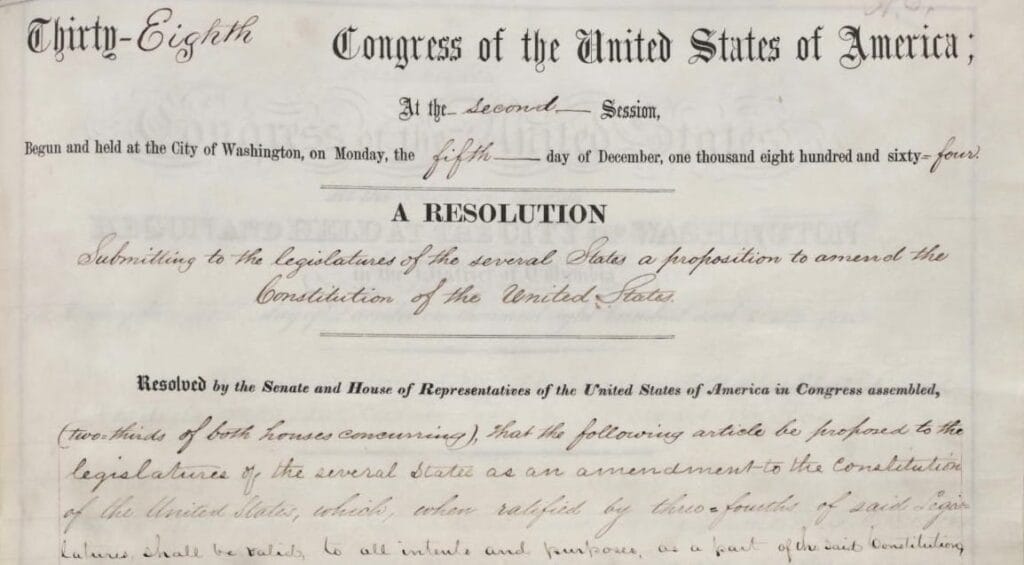 Thirty-Eighth Congress of the United States of America;
At the second Session,
Begun and held at the City of Washington, on Monday, the fifth day of December, one thousand eight hundred and sixty-four.
A RESOLUTION
Submitting to the legislatures of the several States a proposition to amend the
Constitution of the United States.
Resolved by the Senate and House of Representatives of the United States of America in Congress assembled,
(two-thirds of both houses concurring), that the following article be proposed to the
legislatures of the several States as an amendment to the Constitution
of the United States, which, when ratified by three-fourths of said Legis-
latures, shall be valid, to all intents and purposes, as a part of the said Constitution,